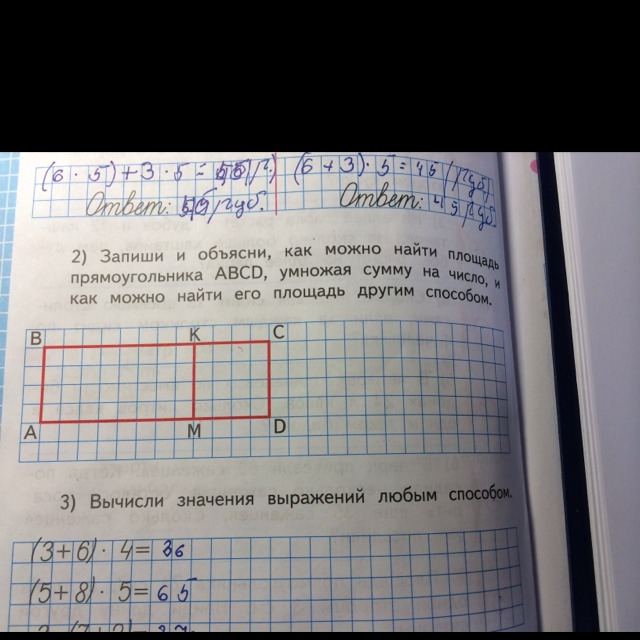 (6 · 5) + 3 · 5 = (6 + 3) · 5 = 45 (руб)
Ответ: руб. Ответ: 45 руб.
2) Запиши и объясни, как можно найти площадь
прямоугольника ABCD, умножая сумму на число, и
как можно найти его площадь другим способом.
B K C
A M D
3) Вычисли значения выражений любым способом.
(3+6) · 4 = 36
(5+8) · 5 = 65